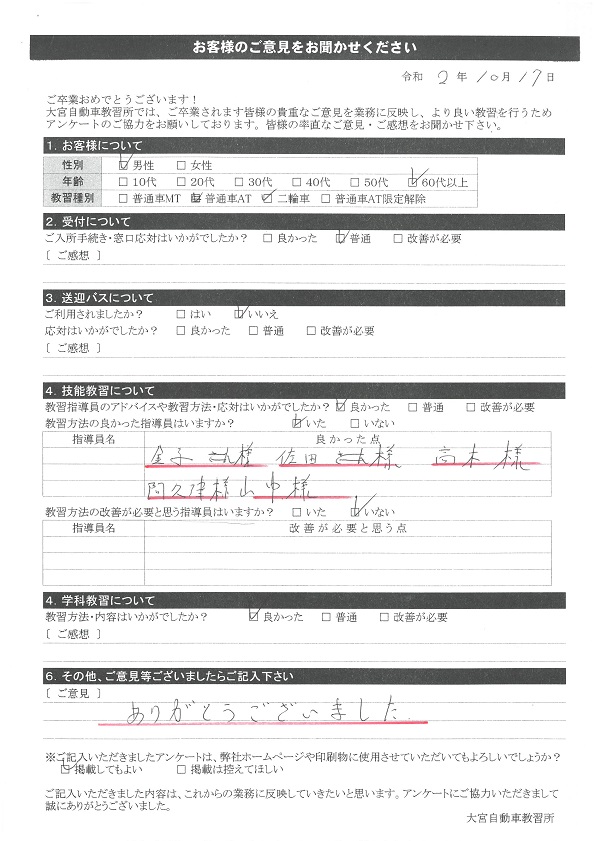 お客様のご意見をお聞かせください
令和 2 年 10 月 17 日
ご卒業おめでとうございます！
大宮自動車教習所では、ご卒業されます皆様の貴重なご意見を業務に反映し、より良い教習を行うため
アンケートのご協力をお願いしております。皆様の率直なご意見・ご感想をお聞かせ下さい。
1. お客様について
性別 ☑男性 □女性
年齢 □10代 □20代 □30代 □40代 □50代 ☑60代以上
教習種別 □普通車MT ☑普通車AT ☑二輪車 □普通車AT限定解除
2. 受付について
ご入所手続き・窓口応対はいかがでしたか？ □良かった ☑普通 □改善が必要
[ ご感想 ]
3. 送迎バスについて
ご利用されましたか？ □はい ☑いいえ
応対はいかがでしたか？ □良かった □普通 □改善が必要
[ ご感想 ]
4. 技能教習について
教習指導員のアドバイスや教習方法・応対はいかがでしたか？ ☑良かった □普通 □改善が必要
教習方法の良かった指導員はいますか？ ☑いた □いない
指導員名 良かった点
金子 様 佐田 様 高木 様
阿久津様 山中様
教習方法の改善が必要と思う指導員はいますか？ □いた ☑いない
指導員名 改善が必要と思う点
4. 学科教習について
教習方法・内容はいかがでしたか？ ☑良かった □普通 □改善が必要
[ ご感想 ]
6. その他、ご意見等ございましたらご記入下さい
[ ご意見 ]
ありがとうございました
※ご記入いただきましたアンケートは、弊社ホームページや印刷物に使用させていただいてもよろしいでしょうか？
☑掲載してもよい □掲載は控えてほしい
ご記入いただきました内容は、これからの業務に反映していきたいと思います。アンケートにご協力いただきまして
誠にありがとうございました。
大宮自動車教習所